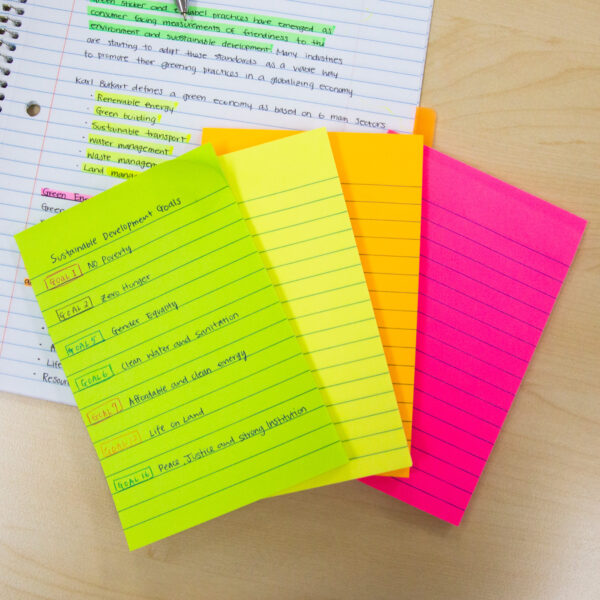 green sticker and label practices have emerged as
consumer facing measurements of friendliness to the
environment and sustainable development. Many industries
are starting to adopt these standards as a viable way
to promote their greening practices in a globalizing economy.
Karl Burkart defines a green economy as based on 6 main sectors
· Renewable energy
· Green building
· Sustainable transport
· Water management
· Waste managem
· Land ma
Green En
Green
Life
Resour
Sustainable Development Goals
GOAL 1 No Poverty
GOAL 2 Zero Hunger
GOAL 5 Gender Equality
GOAL 6 Clean Water and Sanitation
GOAL 7 Affordable and clean energy
GOAL Life on Land
GOAL 16 Peace, Justice and strong Institution